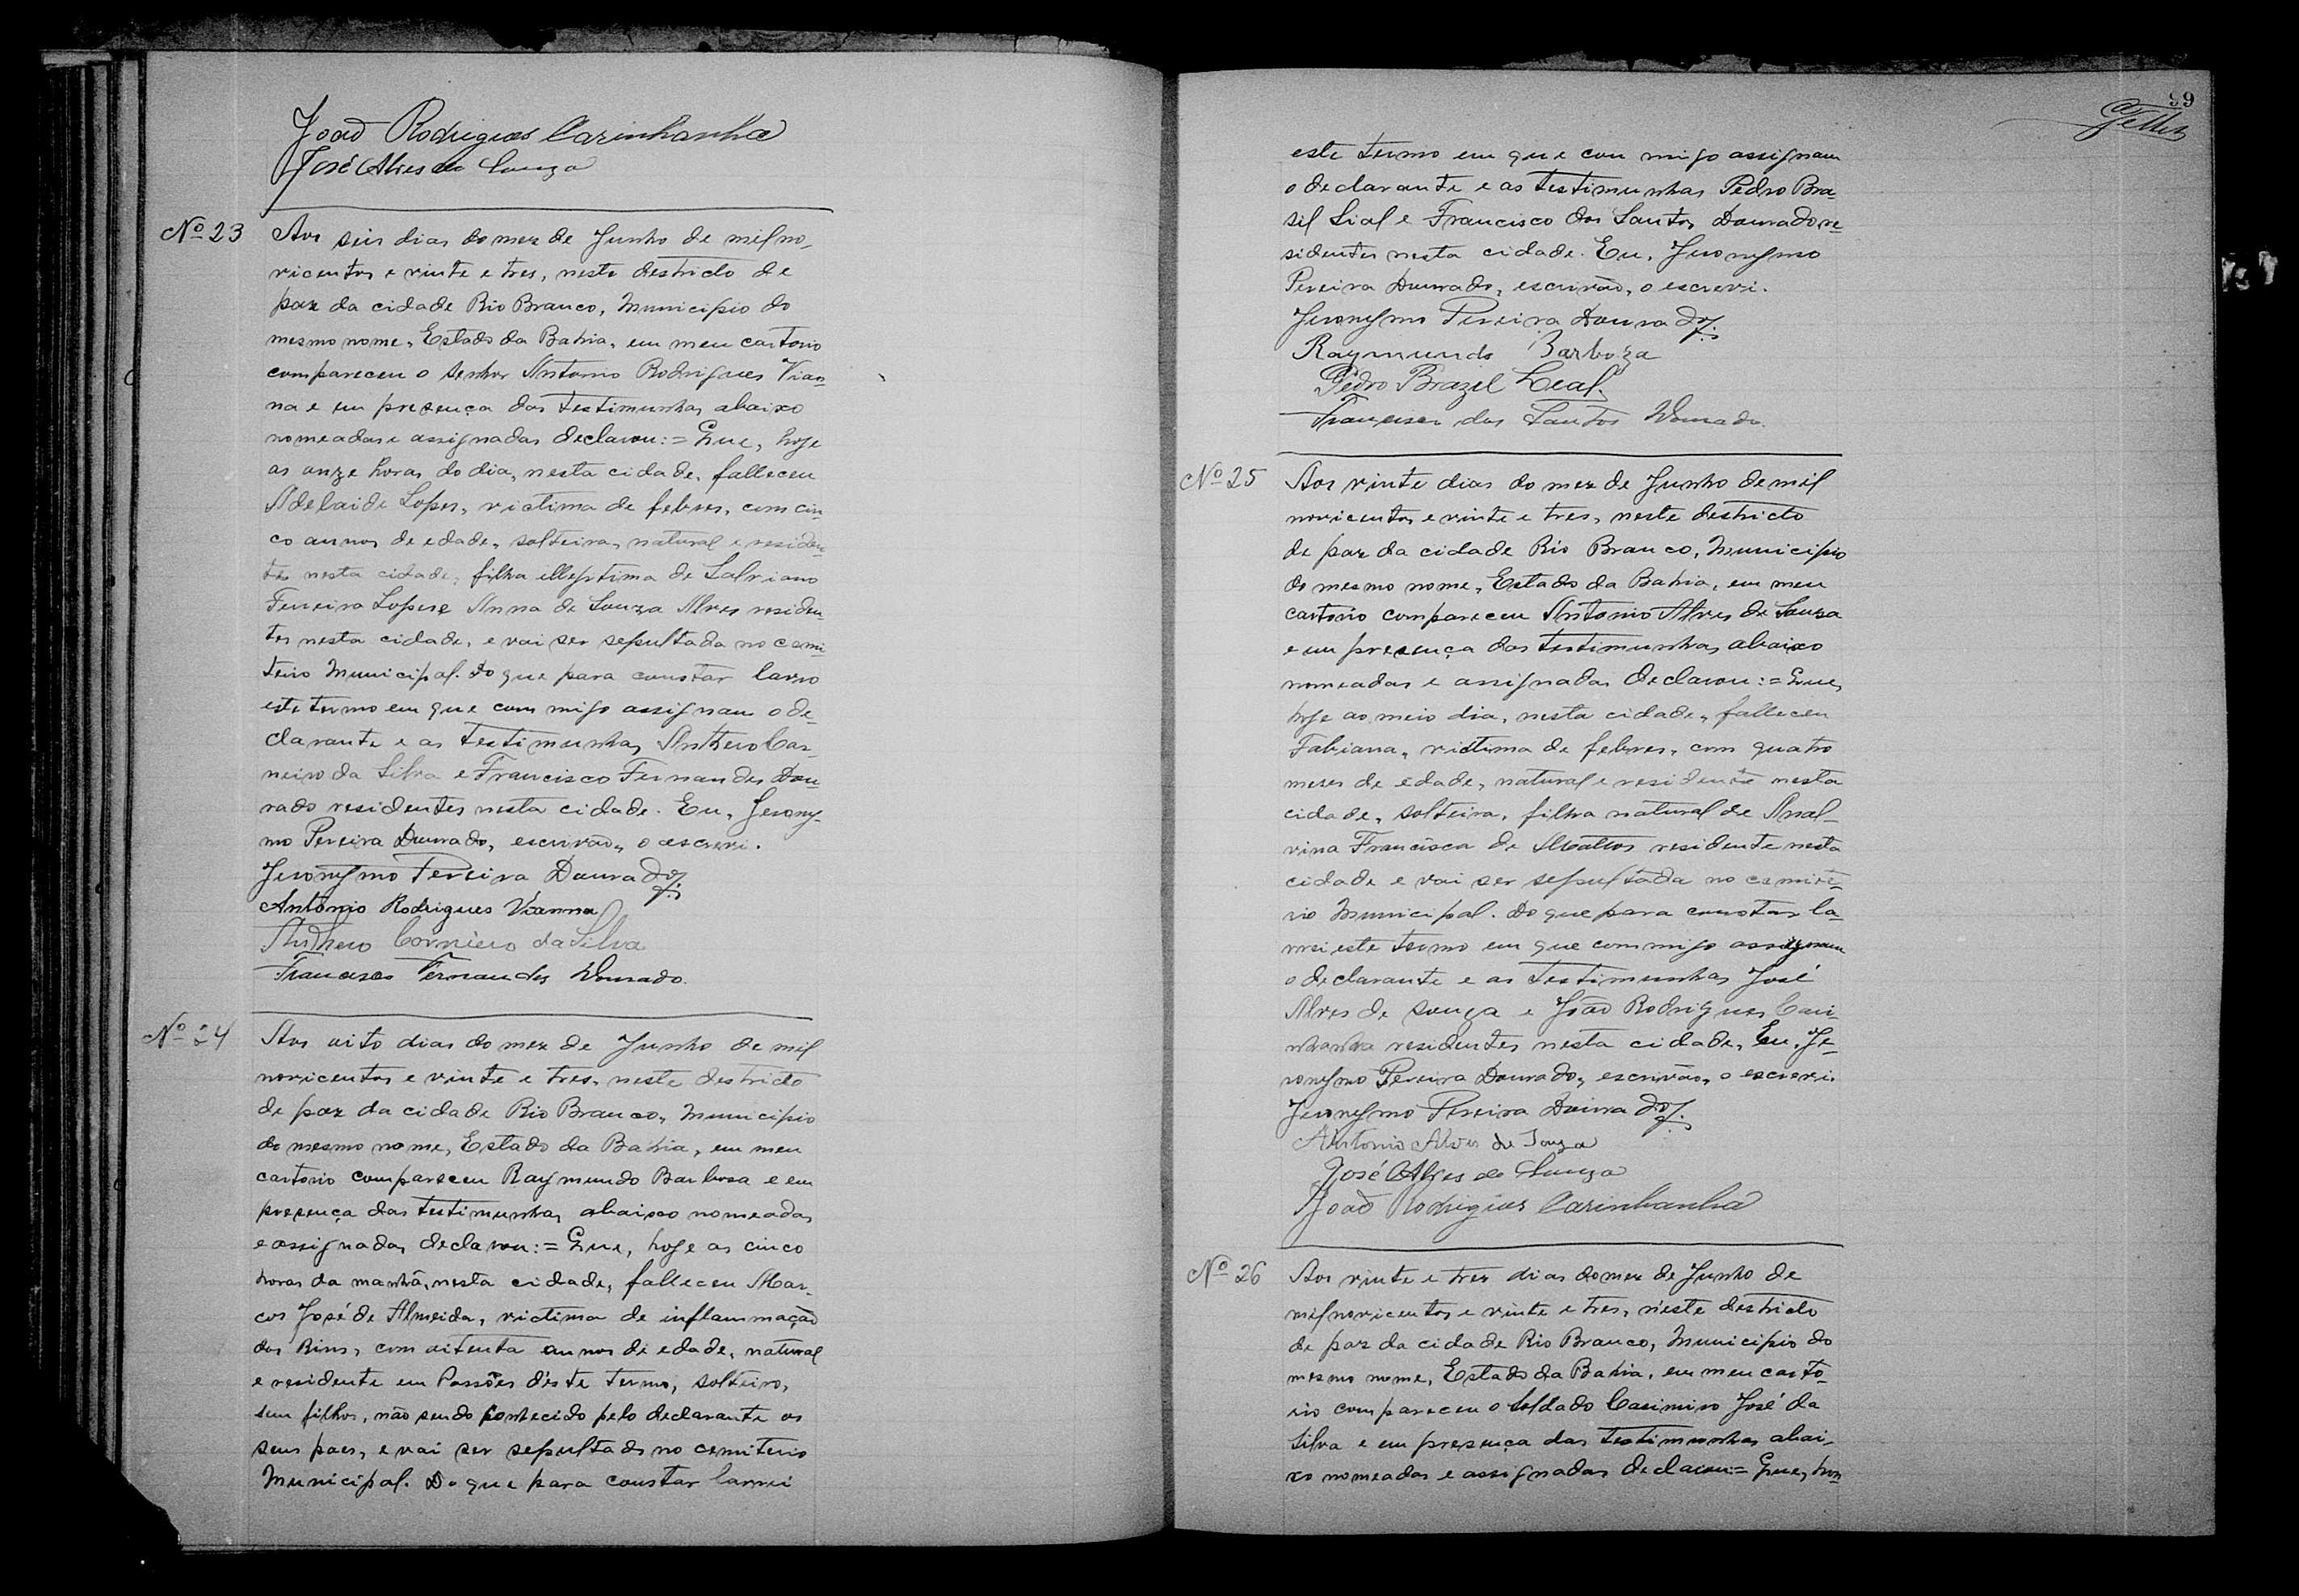 João Rodrigues Carinhanha
José Alves de Souza
Nº 23 Aos seis dias do mez de Junho de mil no-
vicentos e vinte e tres, neste destricto de
paz da cidade Rio Branco, Municipio do
mesmo nome, Estado da Bahia, em meu cartorio
compareceu o senhor Antonio Rodrigues Vian-
na e em presença das testimunhas abaixo
nomeadas e assignadas declarou:= Que, hoje
as onze horas do dia, nesta cidade, falleceu
Adelaide Lopes, victima de febres, com cin-
co annos de edade, solteira, natural e residen-
te nesta cidade, filha illegitima de Salviano
Ferreira Lopes e Anna de Souza Alves residen-
tes nesta cidade, e vai ser sepultada no cemi-
terio Municipal. Do que para constar lavro
este termo em que com migo assignam o de-
clarante e as testimunhas Anthero Car-
neiro da Silva e Francisco Fernandes Dou-
rado residentes nesta cidade. Eu, Jerony-
mo Pereira Dourado, escrivão, o escrevi.
Jeronymo Pereira Dourado
Antonio Rodrigues Vianna
Anthero Corneiro da Silva
Francisco Fernandes Dourado.
Nº 24 Aos oito dias do mez de Junho de mil
novicentos e vinte e tres, neste destricto
de paz da cidade Rio Branco, Municipio
do mesmo nome, Estado da Bahia, em meu
cartorio compareceu Raymundo Barbosa e em
presença das testimunhas abaixo nomeadas
e assignadas declarou:= Que, hoje as cinco
horas da manhã, nesta cidade, falleceu Mar-
cos José de Almeida, victima de inflammação
dos Rins, com oitenta annos de edade, natural
e residente em Passões déste termo, solteiro,
sem filhos, não sendo conhecido pelo declarante os
seus paes, e vai ser sepultado no cemiterio
Municipal. Do que para constar lavrei
99
este termo em que com migo assignam
o declarante e as testimunhas Pedro Bra-
sil Lial e Francisco dos Santos Dourado re-
sidentes nesta cidade. Eu, Jeronymo
Pereira Dourado, escrivão, o escrevi.
Jeronymo Pereira Dourado
Raymundo Barboza
Pedro Brazil Leal.
Francisco dos Santos Dourado.
Nº 25 Aos vinte dias do mez de Junho de mil
novicentos e vinte e tres, neste destricto
de paz da cidade Rio Branco, Municipio
do mesmo nome, Estado da Bahia, em meu
cartorio compareceu Antonio Alves de Souza
e em presença das testimunhas abaixo
nomeadas e assignadas declarou:= Que,
hoje ao meio dia, nesta cidade, falleceu
Fabiana, victima de febres, com quatro
mezes de edade, natural e residente nesta
cidade, solteira, filha natural de Anal-
vina Francisca de Mattos residente nesta
cidade e vai ser sepultada no cemite-
rio Municipal. Do que para constar la-
vrei este termo em que commigo assignam
o declarante e as testimunhas José
Alves de Souza e João Rodrigues Cari-
nhanha residentes nesta cidade, Eu, Je-
ronymo Pereira Dourado, escrivão, o escrevi.
Jeronymo Pereira Dourado
Antonio Alves de Souza
José Alves de Souza
João Rodrigues Carinhanha
Nº 26 Aos vinte e tres dias do mez de Junho de
mil novicentos e vinte e tres, néste destricto
de paz da cidade Rio Branco, Municipio do
mesmo nome, Estado da Bahia, em meu carto-
rio compareceu o soldado Casimiro José da
Silva e em presença das testimunhas abai-
xo nomeadas e assignadas declarou:= Que, hon-